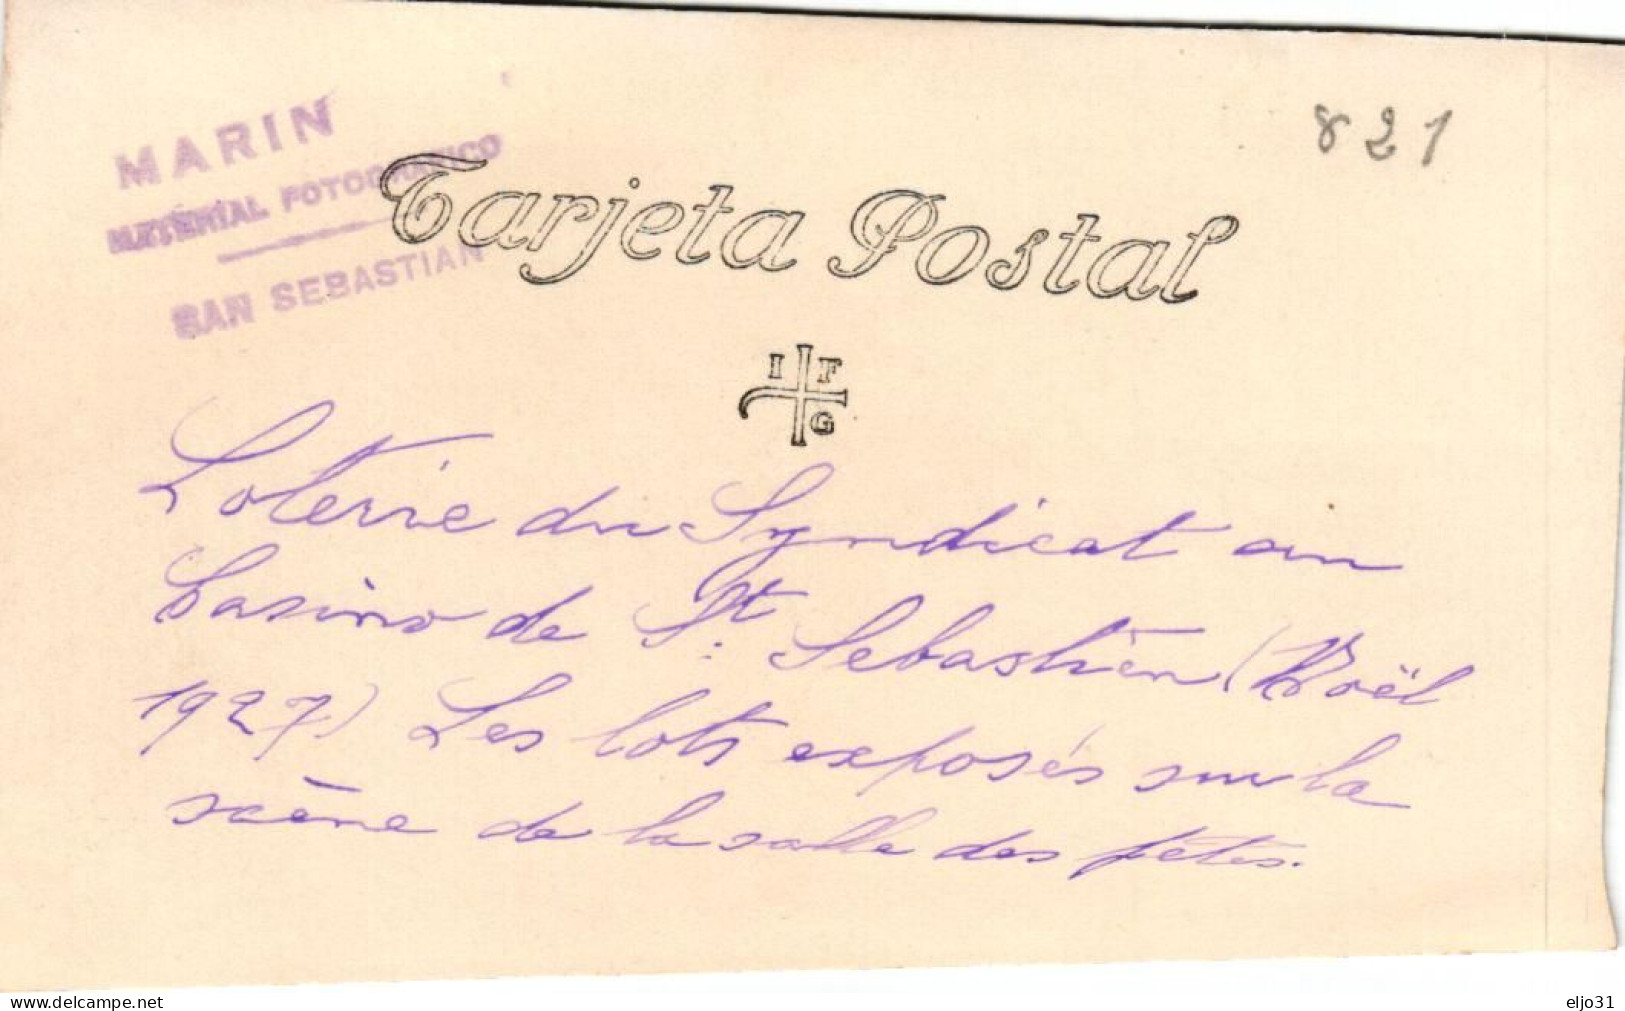 MARIN
MATERIAL FOTOGRAFICO
SAN SEBASTIAN
821
Tarjeta Postal
I F
G
Loterie du Syndicat au
Casino de St. Sebastien (Noël
1927) Les lots exposés sur la
scène de la salle des fêtes.
www.delcampe.net
eljo31